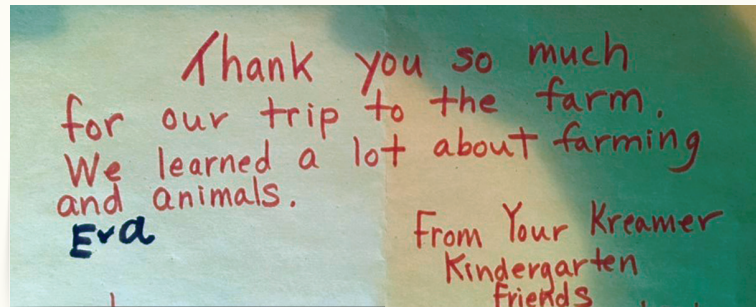 Thank you so much
for our trip to the farm.
We learned a lot about farming
and animals.
Eva
From Your Kreamer
Kindergarten
friends